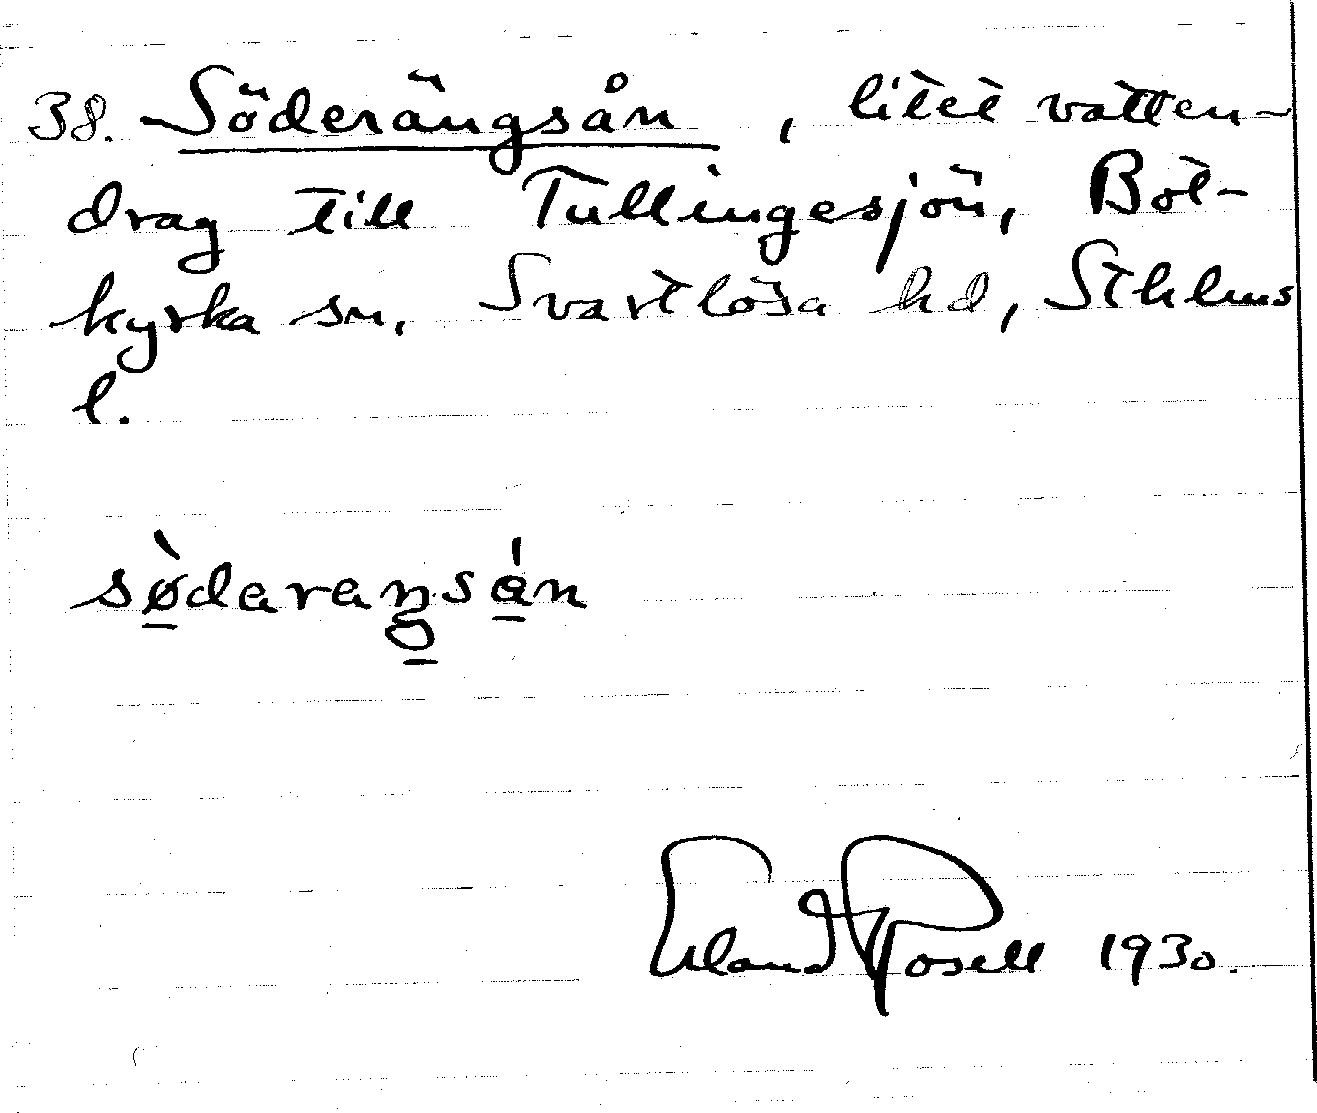 38. Söderängsån, litet vatten-
drag till Tullingesjön, Bot-
kyrka sn, Svartlösa hd, Sthlms
l.
sø̀daraŋsán
Erland Rosell 1930.